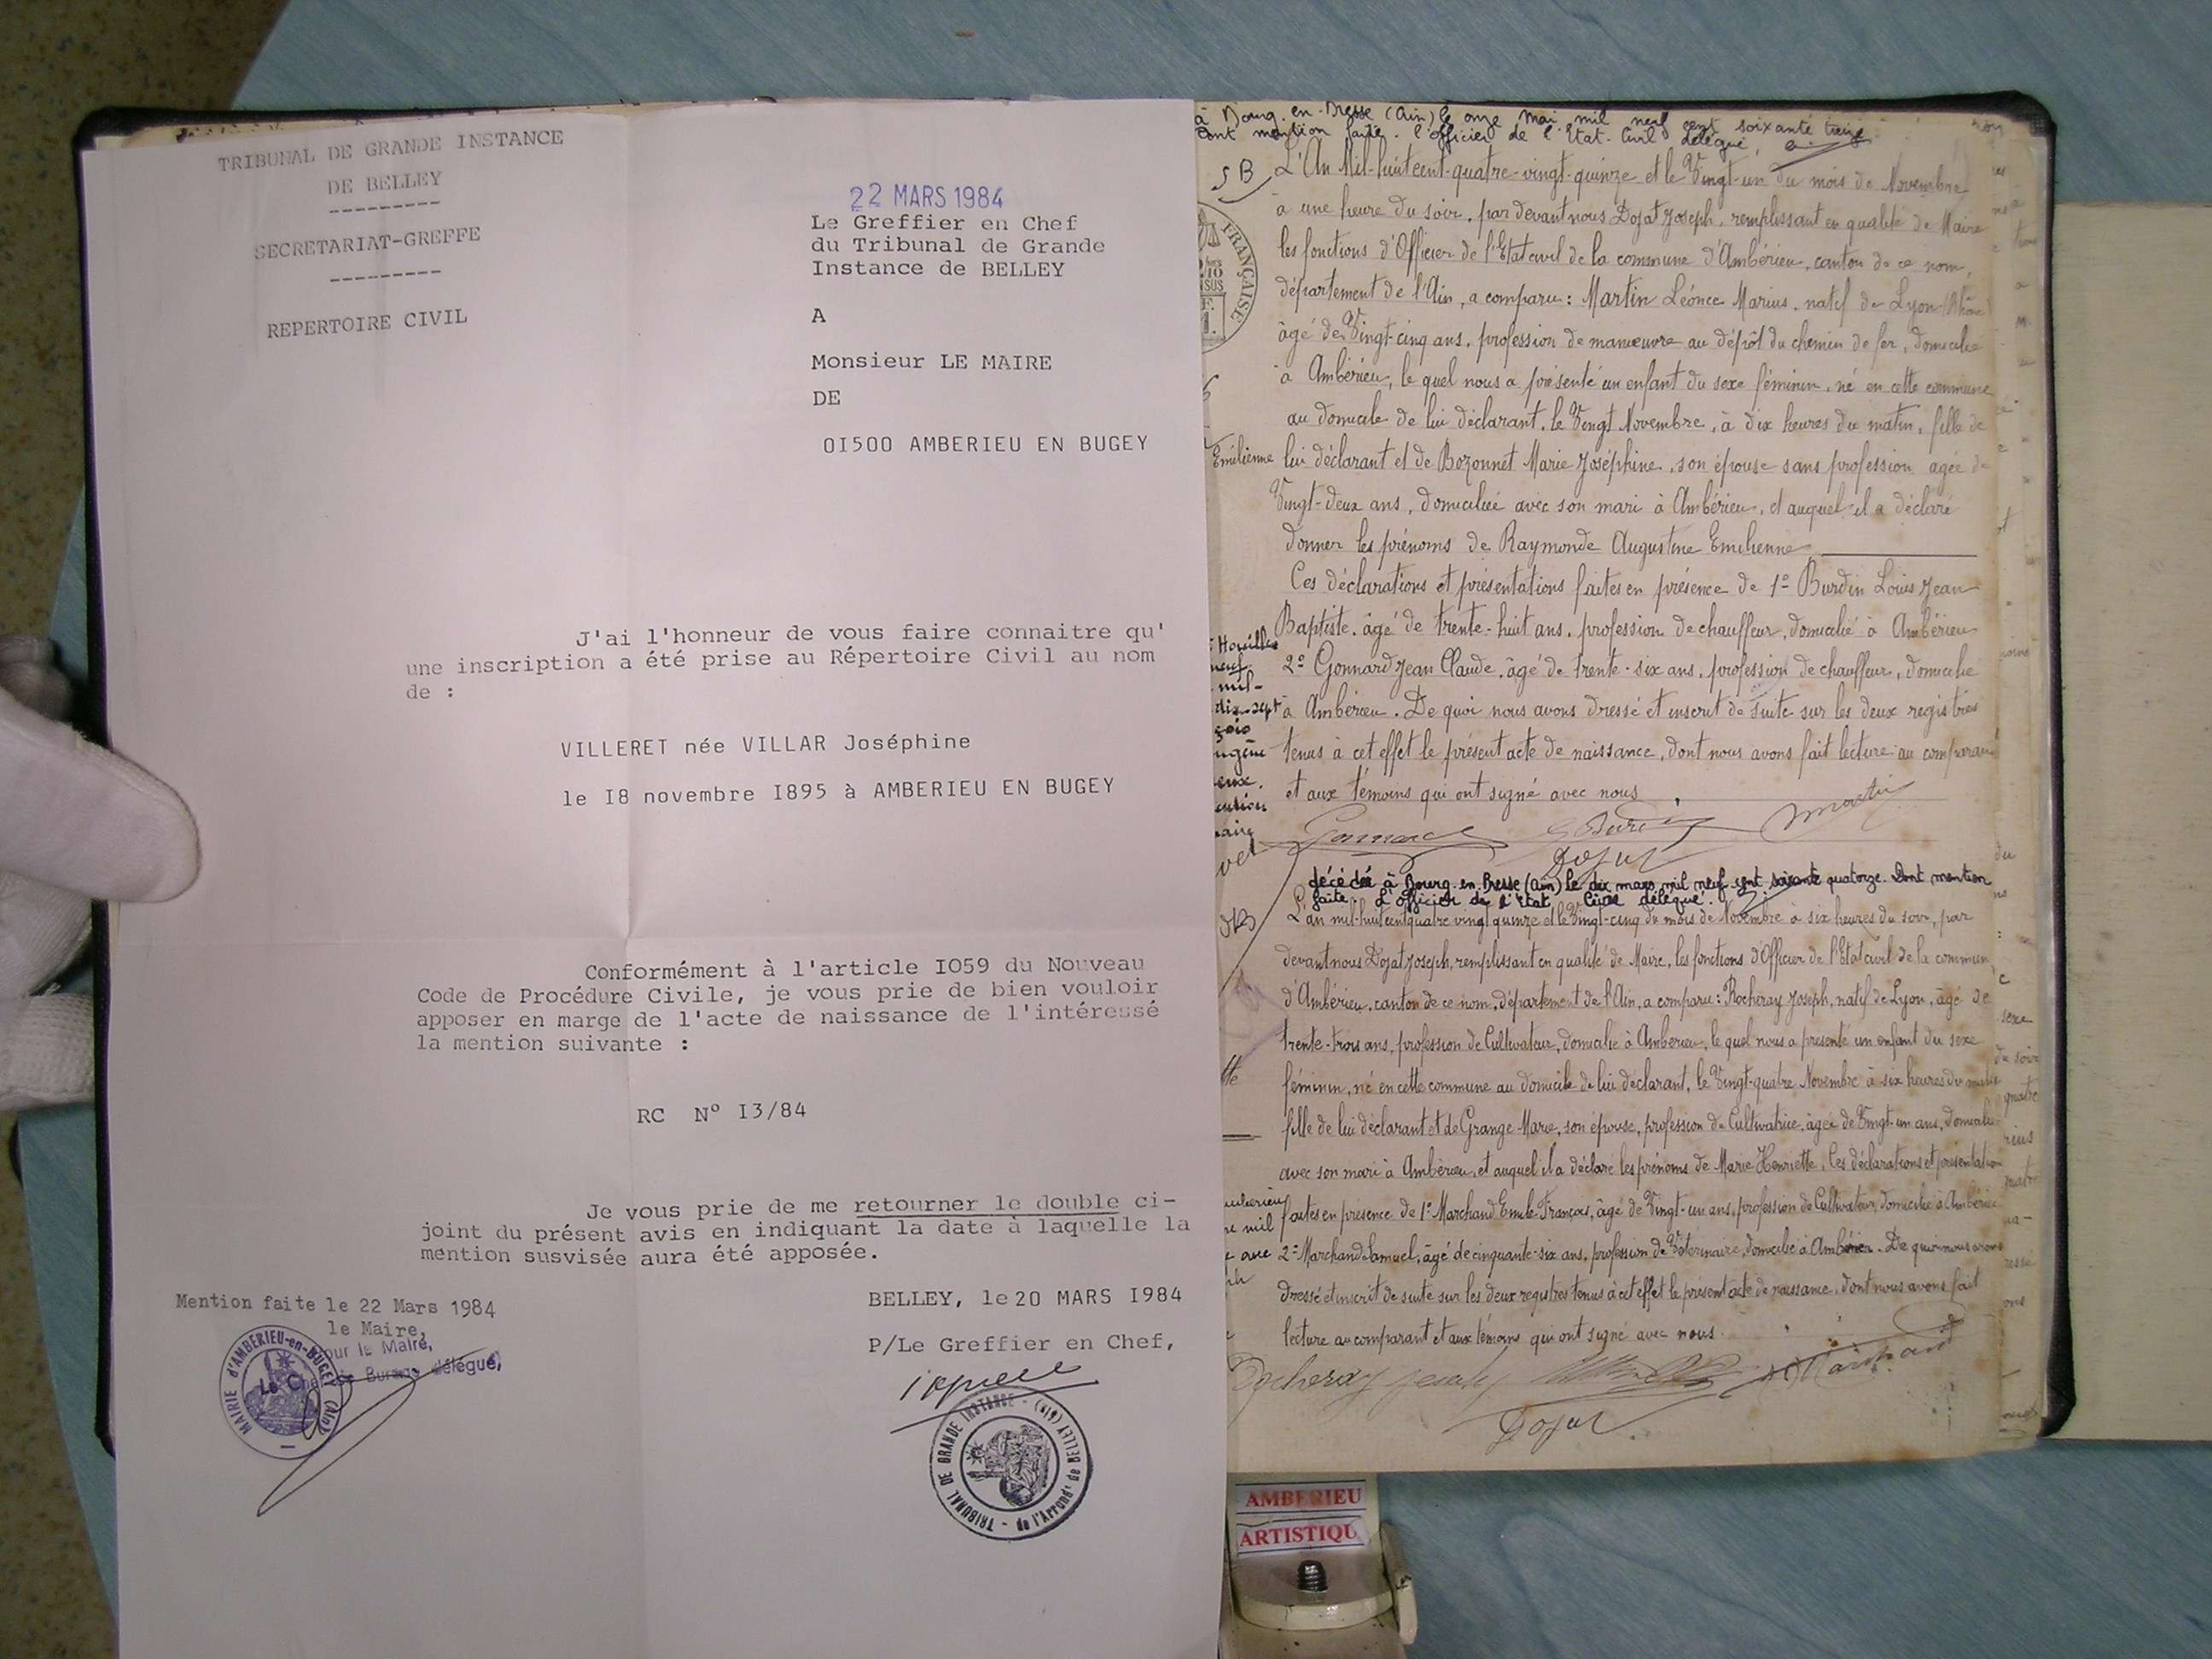 TRIBUNAL DE GRANDE INSTANCE
DE BELLEY
---------
SECRETARIAT-GREFFE
---------
REPERTOIRE CIVIL
22 MARS 1984
Le Greffier en Chef
du Tribunal de Grande
Instance de BELLEY
A
Monsieur LE MAIRE
DE
OI500 AMBERIEU EN BUGEY
J'ai l'honneur de vous faire connaitre qu'
une inscription a été prise au Répertoire Civil au nom
de :
VILLERET née VILLAR Joséphine
le I8 novembre I895 à AMBERIEU EN BUGEY
Conformément à l'article IO59 du Nouveau
Code de Procédure Civile, je vous prie de bien vouloir
apposer en marge de l'acte de naissance de l'intéressé
la mention suivante :
RC Nº I3/84
Je vous prie de me retourner le double ci-
joint du présent avis en indiquant la date à laquelle la
mention susvisée aura été apposée.
BELLEY, le 20 MARS I984
P/Le Greffier en Chef,
TRIBUNAL DE GRANDE INSTANCE - de l'Arrond. de BELLEY (Ain)
Mention faite le 22 Mars 1984
le Maire,
Pour le Maire,
Le Chef de Bureau délégué,
MAIRIE d'AMBERIEU-en-BUGEY (Ain)
à Bourg-en-Bresse (Ain) le onze mai mil neuf cent soixante treize
Dont mention faite. L'officier de l'Etat-Civil délégué,
L'An Mil-huit cent-quatre-vingt-quinze et le Vingt-un du mois de Novembre
à une heure du soir, par devant nous Dojat Joseph, remplissant en qualité de Maire
les fonctions d'Officier de l'Etat civil de la commune d'Ambérieu, canton de ce nom,
département de l'Ain, a comparu: Martin Léonce Marius, natif de Lyon (Rhône)
âgé de Vingt-cinq ans, profession de manœuvre au dépôt du chemin de fer, domicilié
à Ambérieu, le quel nous a présenté un enfant du sexe féminin, né en cette commune
au domicile de lui déclarant, le Vingt Novembre, à dix heures du matin, fille de
Emilienne
lui déclarant et de Bozonnet Marie Joséphine, son épouse sans profession agée de
Vingt-deux ans, domiciliée avec son mari à Ambérieu, et auquel il a déclaré
donner les prénoms de Raymonde Augustine Emilienne
Ces déclarations et présentations faites en présence de 1º Burdin Louis Jean
Baptiste, âgé de trente-huit ans, profession de chauffeur, domicilié à Ambérieu
2º Gonnard Jean Claude, âgé de trente-six ans, profession de chauffeur, domicilié
à Ambérieu. De quoi nous avons dressé et inscrit de suite sur les deux registres
tenus à cet effet le présent acte de naissance, dont nous avons fait lecture au comparant
et aux témoins qui ont signé avec nous
Gonnard Burdin Martin
Dojat
décédée à Bourg-en-Bresse (Ain) le dix mars mil neuf cent soixante quatorze. Dont mention
faite. L'officier de l'Etat Civil délégué.
L'an mil-huit cent quatre vingt quinze et le Vingt-cinq du mois de Novembre à six heures du soir, par
devant nous Dojat Joseph, remplissant en qualité de Maire, les fonctions d'Officier de l'Etat civil de la commune
d'Ambérieu, canton de ce nom, département de l'Ain, a comparu: Rocheray Joseph, natif de Lyon, âgé de
trente-trois ans, profession de Cultivateur, domicilié à Ambérieu, le quel nous a présenté un enfant du sexe
féminin, né en cette commune au domicile de lui déclarant, le Vingt-quatre Novembre à six heures du matin
fille de lui déclarant et de Grange Marie, son épouse, profession de Cultivatrice, âgée de Vingt-un ans, domiciliée
avec son mari à Ambérieu, et auquel il a déclaré les prénoms de Marie Henriette. Ces déclarations et présentations
faites en présence de 1º Marchand Emile François, âgé de Vingt-un ans, profession de Cultivateur, domicilié à Ambérieu
2º Marchand Samuel, âgé de cinquante-six ans, profession de Vétérinaire, domicilié à Ambérieu. De quoi nous avons
dressé et inscrit de suite sur les deux registres tenus à cet effet le présent acte de naissance, dont nous avons fait
lecture au comparant et aux témoins qui ont signé avec nous.
Rocheray Joseph Marchand
Dojat
AMBERIEU
ARTISTIQU